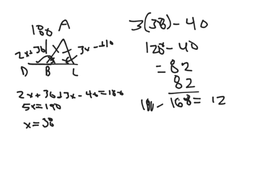 180 A
2x+36 3x-40
D B C
2x+36+3x-4x=180
5x=190
x=38
3(38)-40
128-40
=82
82
- 168= 12